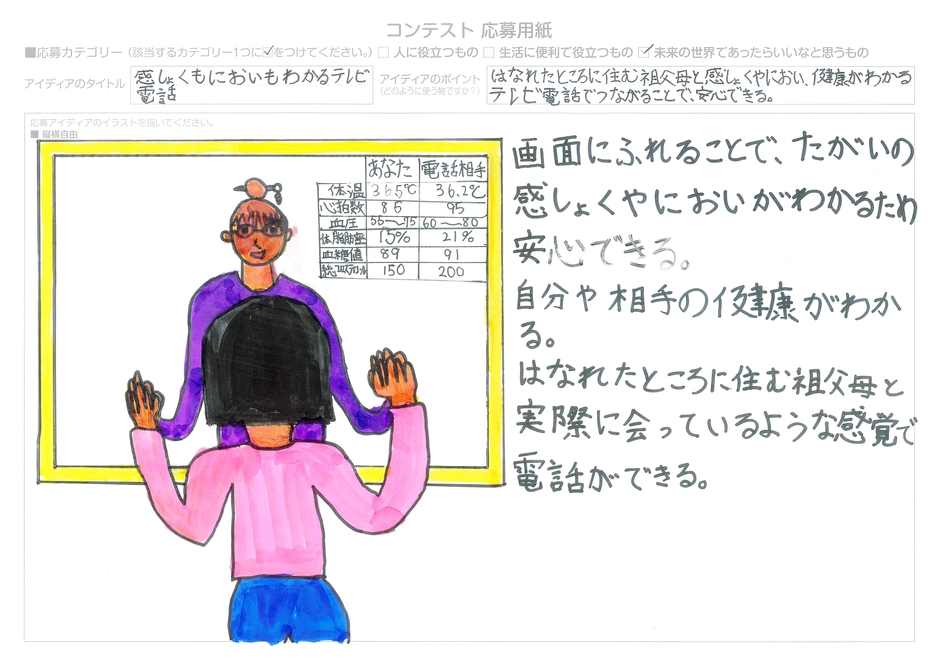 コンテスト 応募用紙
■応募カテゴリー (該当するカテゴリー1つに☑をつけてください。) □ 人に役立つもの □ 生活に便利で役立つもの ☑ 未来の世界であったらいいなと思うもの
アイディアのタイトル
感しょくもにおいもわかるテレビ
電話
アイディアのポイント
(どのように使う物ですか?)
はなれたところに住む祖父母と感しょくやにおい、健康がわかる
テレビ電話でつながることで、安心できる。
応募アイディアのイラストを描いてください。
■ 縦横自由
あなた 電話相手
体温 36.5℃ 36.2℃
心拍数 86 95
血圧 55〜75 60〜80
体脂肪率 15% 21%
血糖値 89 91
総コレステロール 150 200
画面にふれることで、たがいの
感しょくやにおいがわかるため
安心できる。
自分や相手の健康がわか
る。
はなれたところに住む祖父母と
実際に会っているような感覚で
電話ができる。